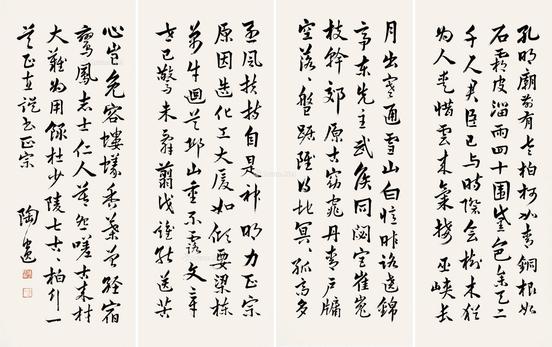 孔明廟前有老柏柯如青銅根如
石霜皮溜雨四十圍黛色參天二
千尺君臣已與時際會樹木猶
為人愛惜雲來氣接巫峽長
月出寒通雪山白憶昨路遶錦
亭東先主武侯同閟宮崔嵬
枝幹郊原古窈窕丹青戶牖
空落々盤踞雖得地冥々孤高多
烈風扶持自是神明力正直
原因造化工大廈如傾要梁棟
萬牛迴首邱山重不露文章
世已驚未辭翦伐誰能送苦
心豈免容螻蟻香葉曾經宿
鸞鳳志士仁人莫怨嗟古來材
大難為用錄杜少陵七古古柏行一
首正直說書正宗
陶